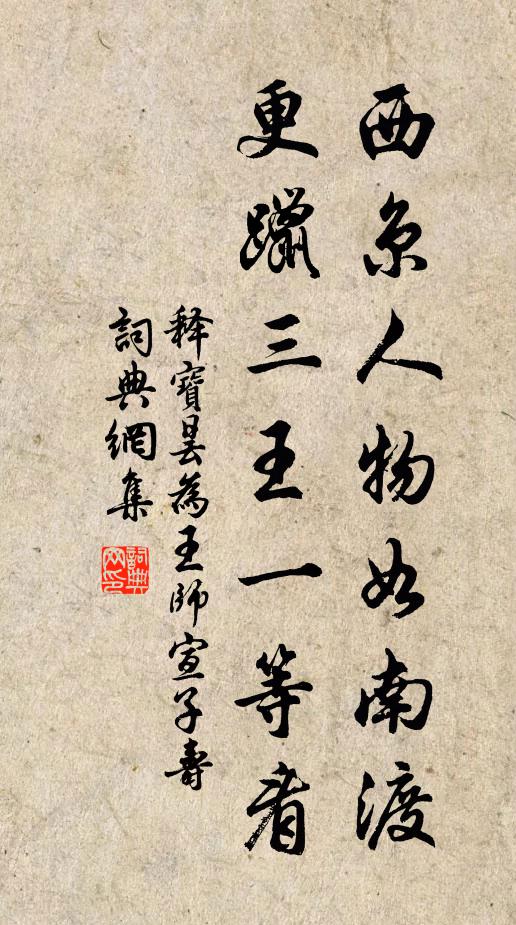 西京人物如南渡
更躐三王一等看
释寶昙為王師宣子壽
詞典網集
詞典网印